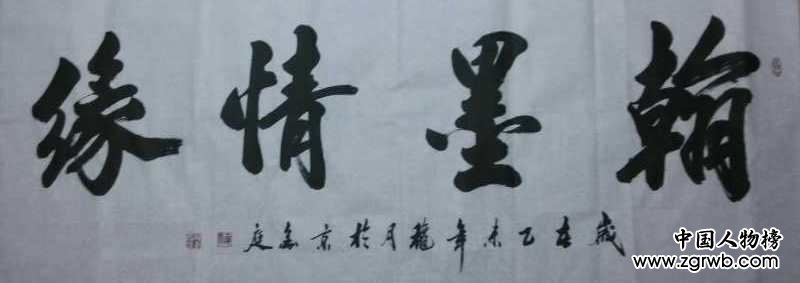 翰墨情缘
歲在乙未年龍月於京
庭
中国人物榜
www.zgrwb.com